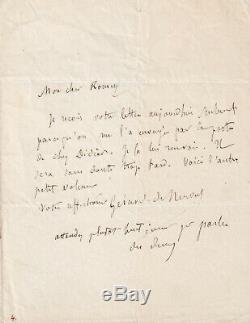 Mon cher
Je reçois votre lettre aujourd'hui seulement
parcequ'on me l'a envoyée par la poste
de chez Didier. Je la lui renvoie. Il
sera sans doute trop tard. Voici l'autre
petit volume
Votre aff. Gérard de Nerval
attendez plutôt huit jours je parle
4.